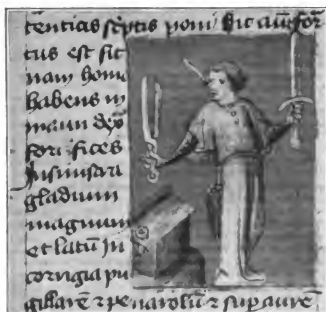 tencias sc̄ptis poni Sic aūt for
tus est sit
nam homo
habens in
manu dex̄
forfices
In sinistra
gladium
magnum
et latū In
corrigia pu
gillarē ⁊ penarolū ⁊ sup aurē